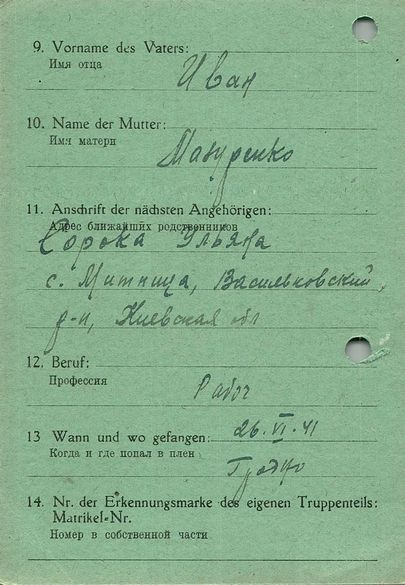 9. Vorname des Vaters:
Имя отца
Иван
10. Name der Mutter:
Имя матери
Мазуренко
11. Anschrift der nächsten Angehörigen:
Адрес ближайших родственников
Сорока Ульяна
с. Митница, Васильковский
р-н, Киевская обл
12. Beruf:
Профессия
Рабоч
13 Wann und wo gefangen: 26. VI. 41
Когда и где попал в плен
Гродно
14. Nr. der Erkennungsmarke des eigenen Truppenteils:
Matrikel-Nr.
Номер в собственной части